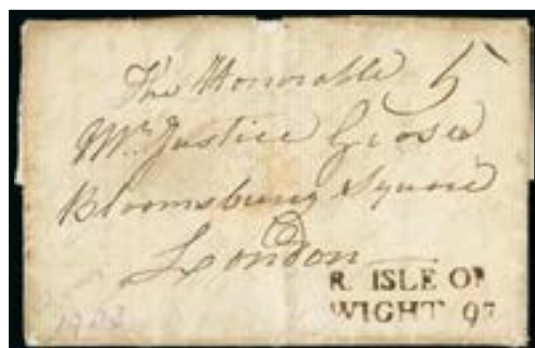 The Honorable 5
Mr. Justice Grose
Bloomsbury Square
London
R. ISLE OF
WIGHT 97